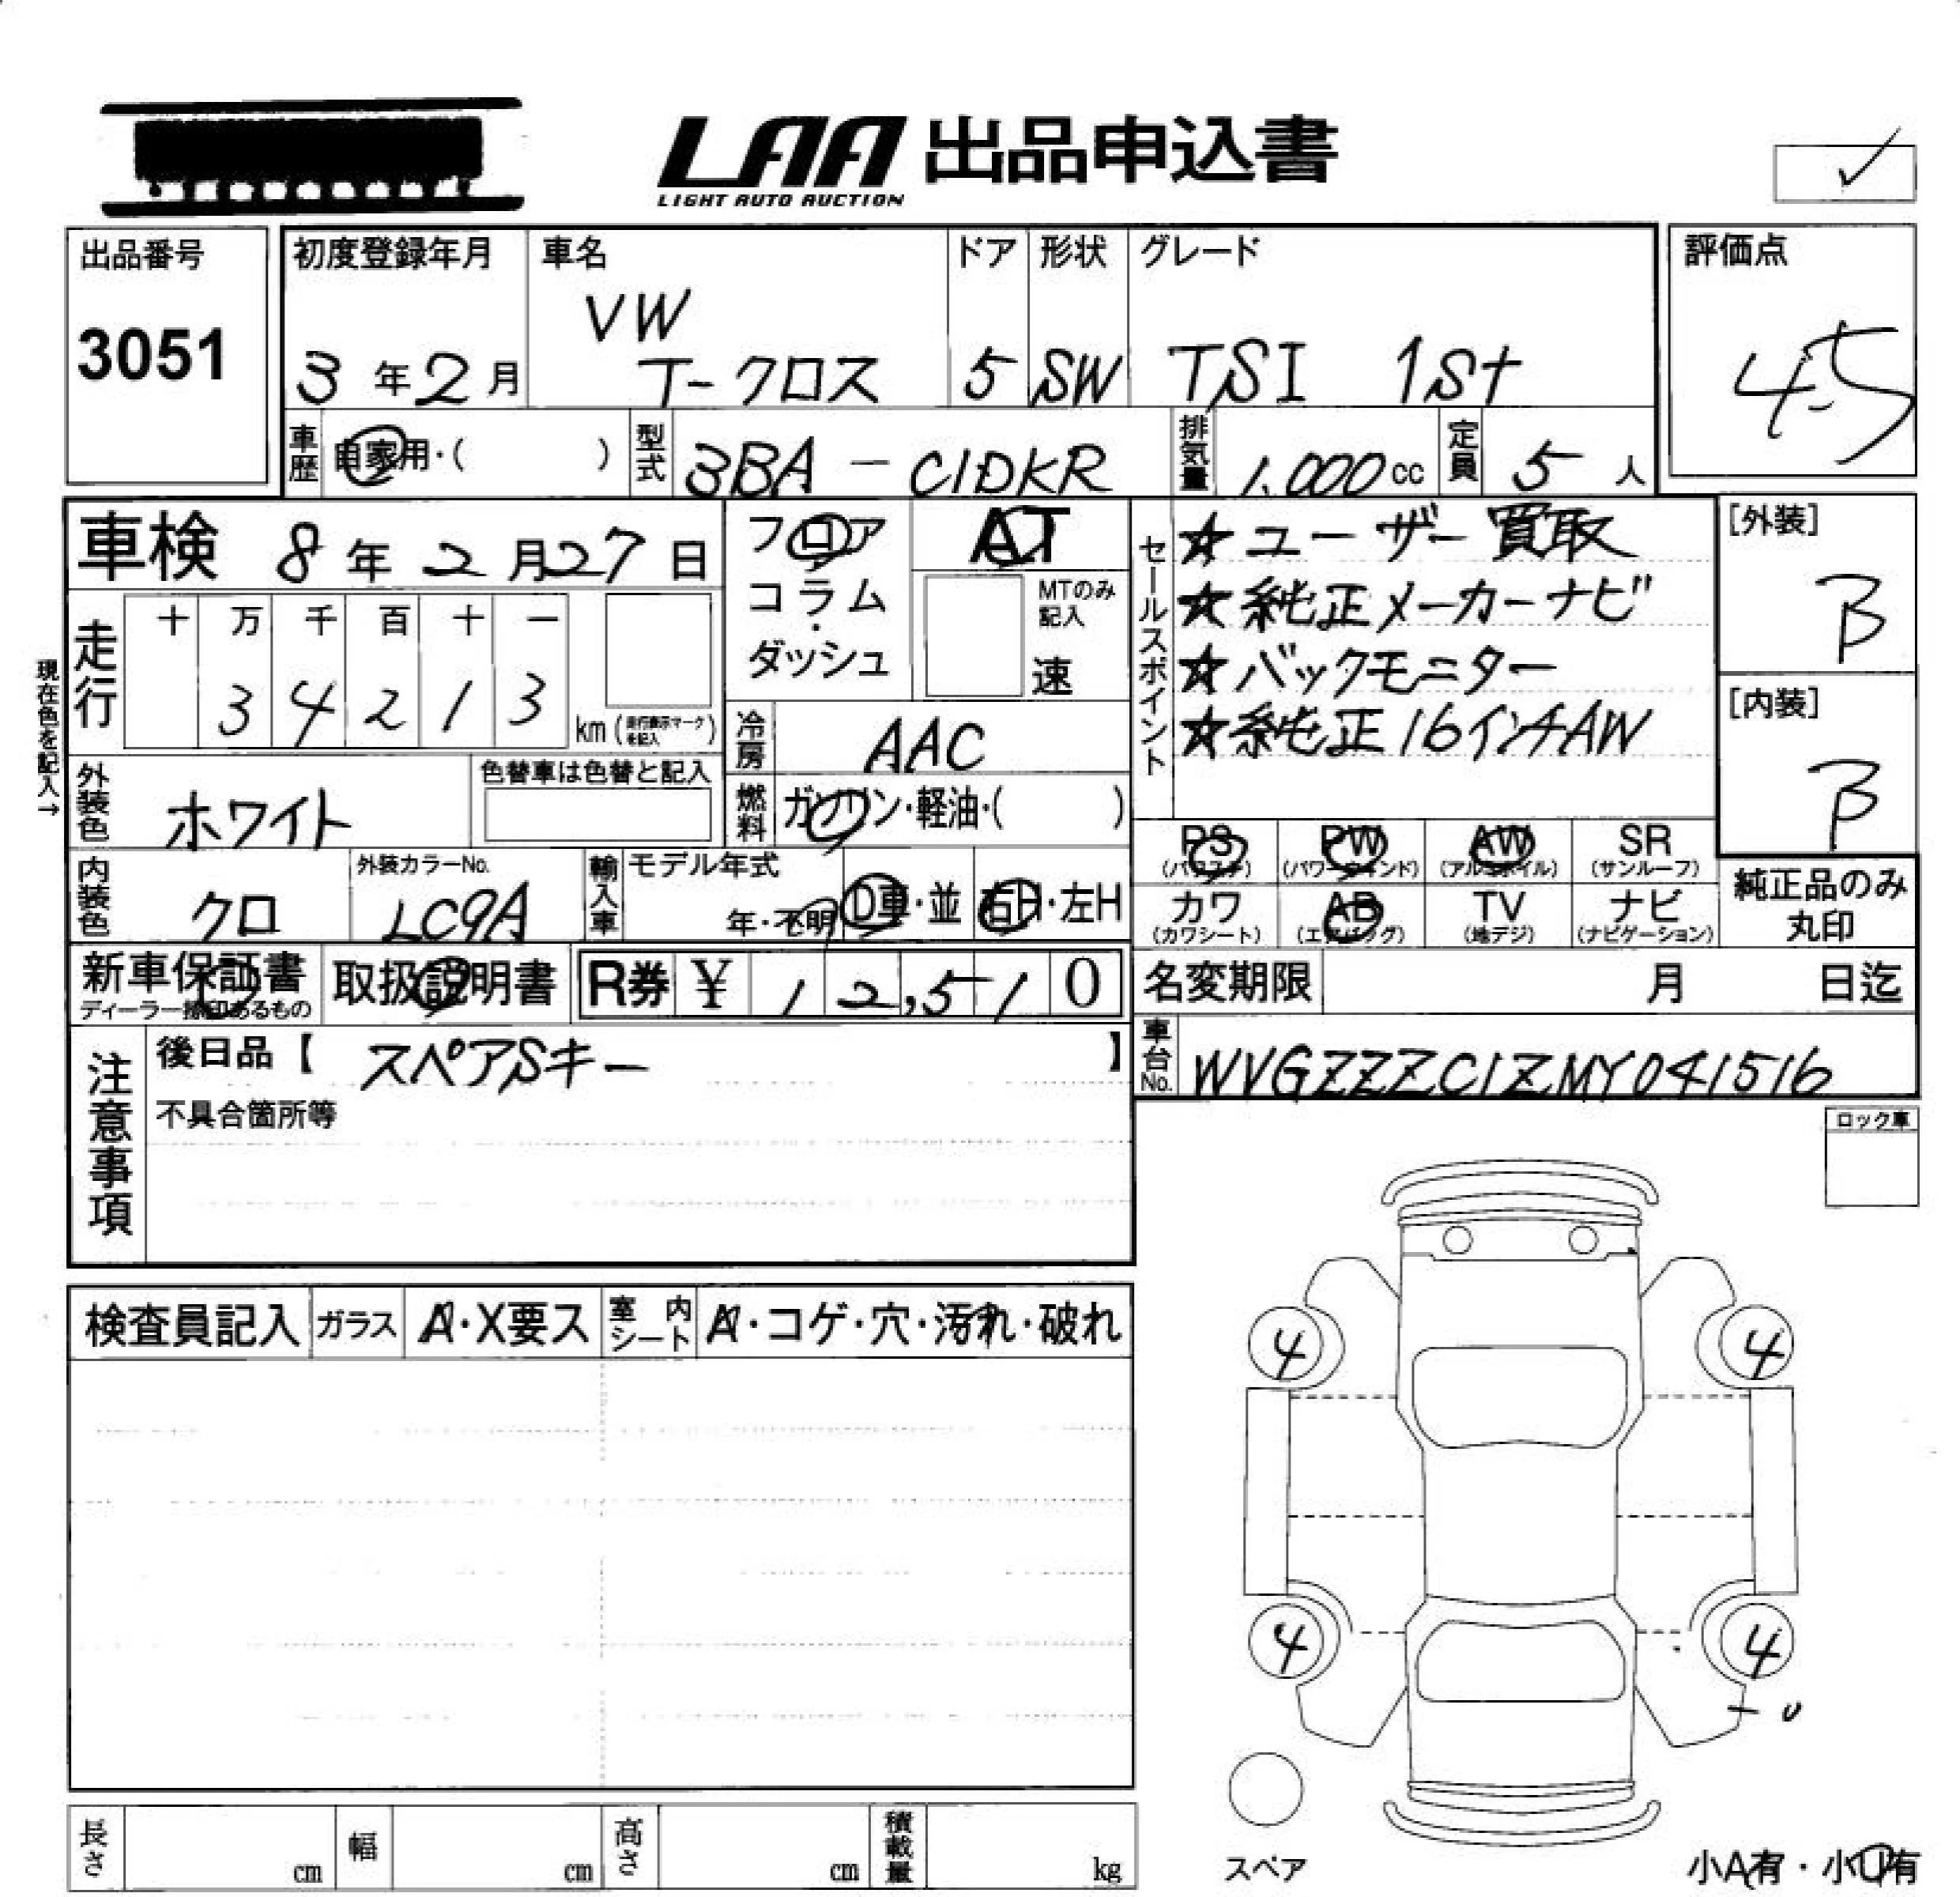 LAA 出品申込書
LIGHT AUTO AUCTION
出品番号
3051
初度登録年月
3年2月
車名
VW
T-クロス
ドア
5
形状
SW
グレード
TSI 1St
評価点
4.5
車歴
自家用・( )
型式
3BA-C1DKR
排気量
1.000cc
定員
5人
車検 8年2月27日
フロア
コラム
・
ダッシュ
AT
MTのみ
記入
速
セールスポイント
☆ユーザー買取
☆純正メーカーナビ
☆バックモニター
☆純正16インチAW
[外装]
B
[内装]
B
現在色を記入→
走行
十 万 千 百 十 一
3 4 2 1 3
km(走行表示マークを記入)
冷房
AAC
外装色
ホワイト
色替車は色替と記入
燃料
ガソリン・軽油・( )
PS
(パワステ)
PW
(パワーウインド)
AW
(アルミホイル)
SR
(サンルーフ)
内装色
クロ
外装カラーNo.
LC9A
輸入車
モデル年式
年・不明
D車・並
右H・左H
カワ
(カワシート)
AB
(エアバッグ)
TV
(地デジ)
ナビ
(ナビゲーション)
純正品のみ
丸印
新車保証書
ディーラー捺印あるもの
取扱説明書
R券 ¥ 12,510
名変期限 月 日迄
注意事項
後日品【 スペアSキー 】
不具合箇所等
車台No.
WVGZZZC1ZMY041516
ロック車
検査員記入
ガラス
A・X要ス
室内シート
A・コゲ・穴・汚れ・破れ
4 4
4 4
スペア
小A有・小U有
長さ cm
幅 cm
高さ cm
積載量 kg